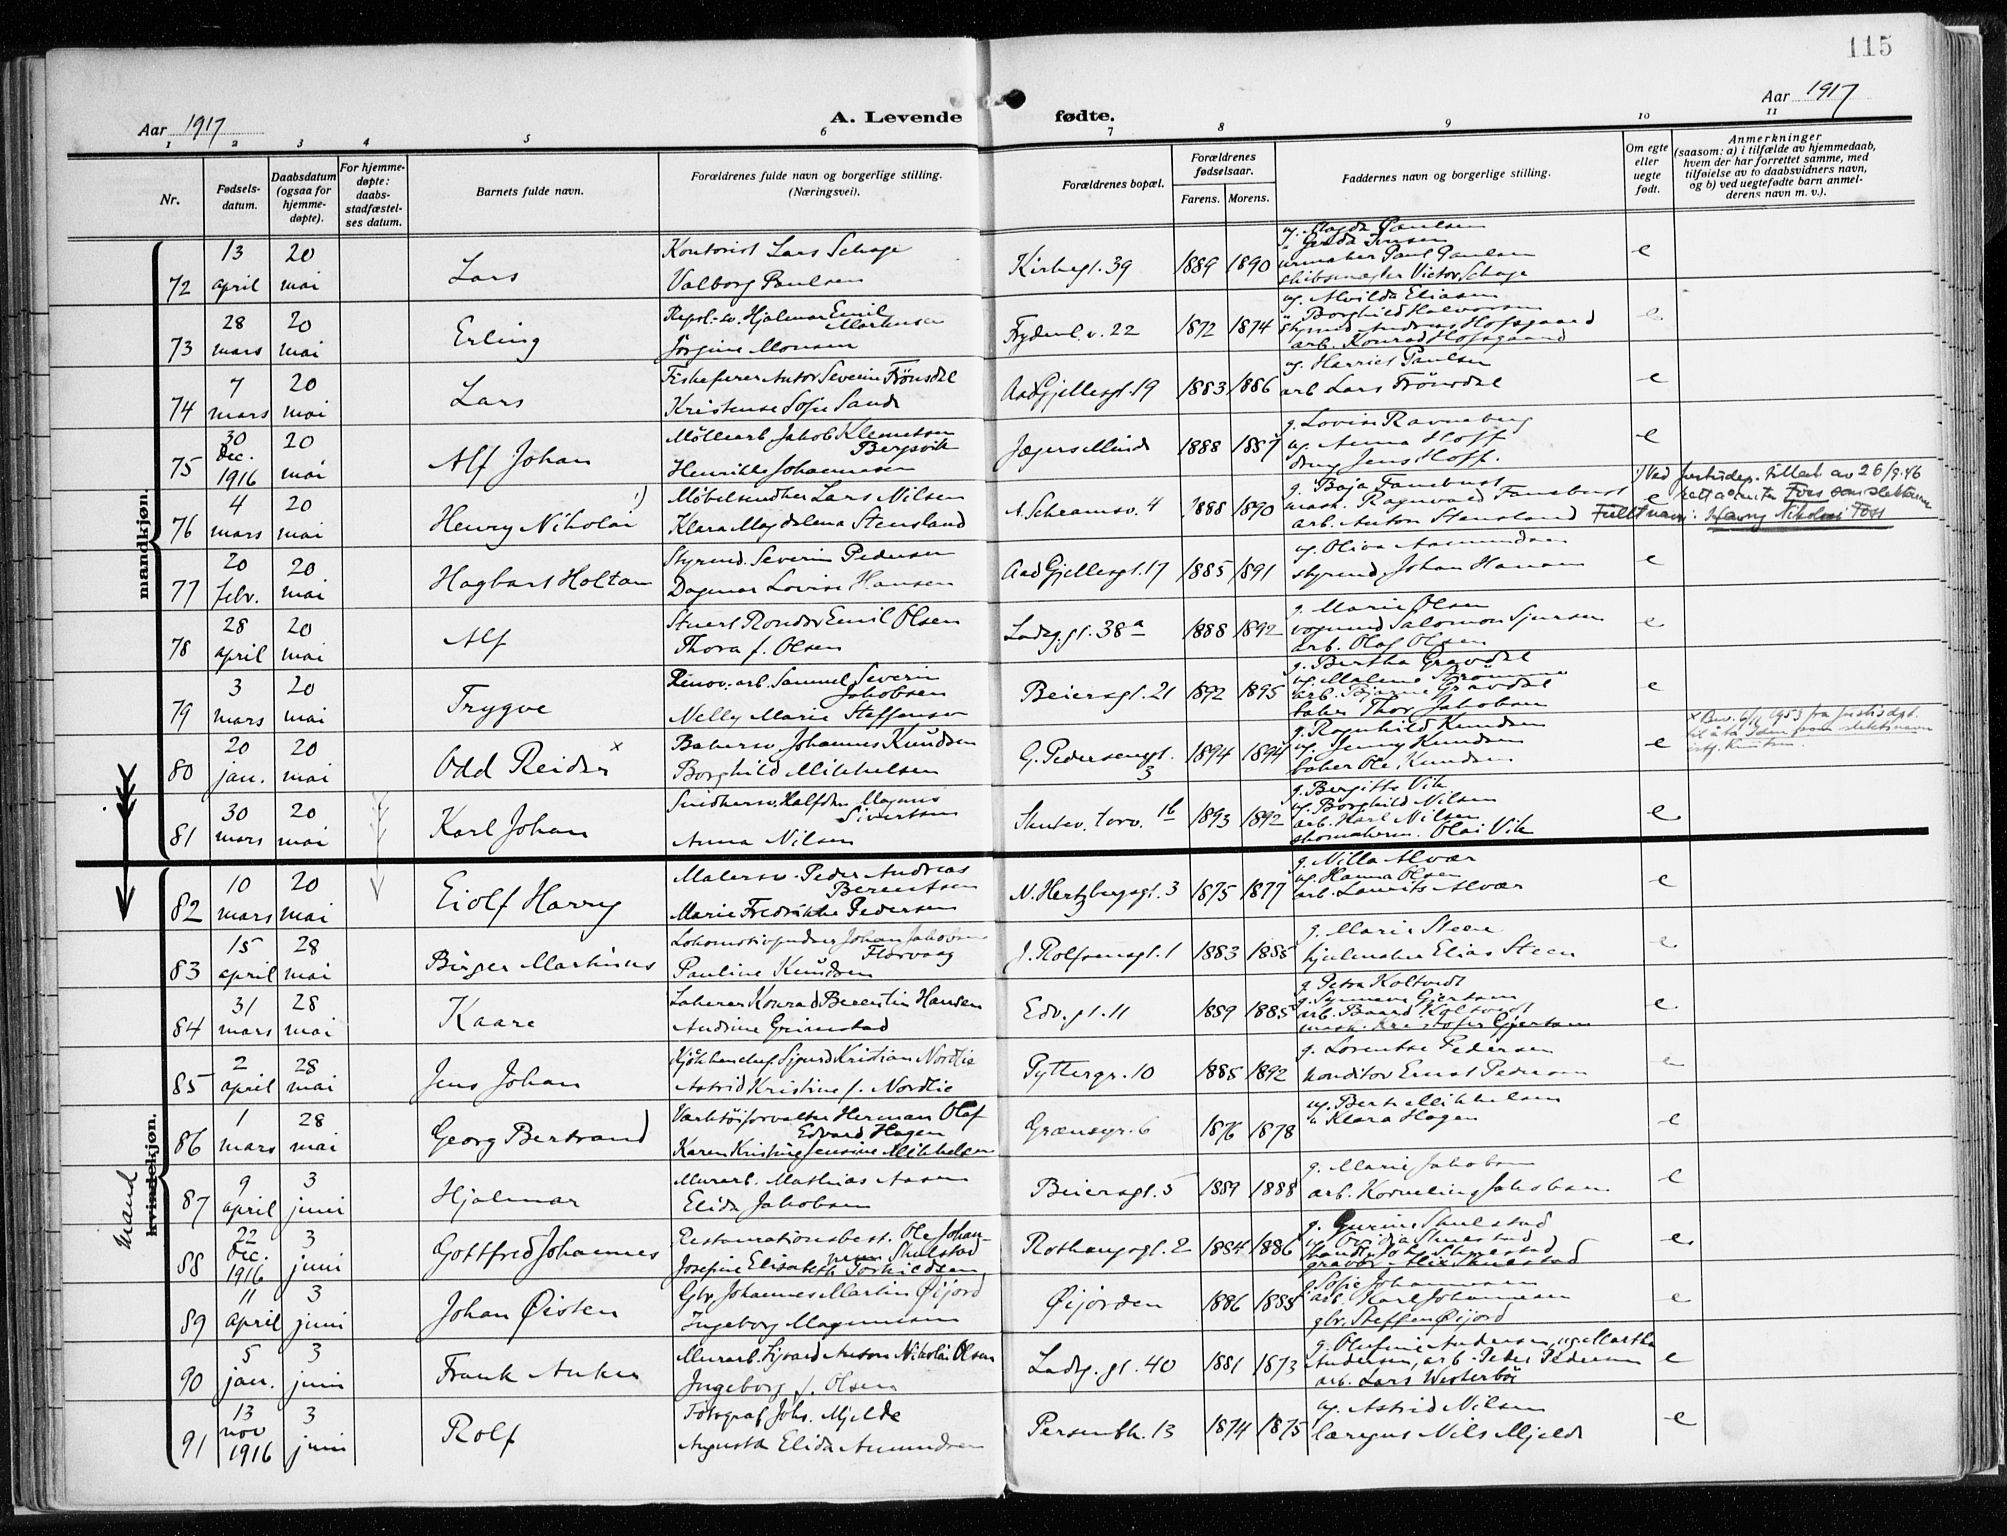 115
Aar 1917
A. Levende fødte.
Aar 1917
1 2 3 4 5 6 7 8 9 10 11
Nr.
Fødsels-
datum.
Daabsdatum
(ogsaa for
hjemme-
døpte).
For hjemme-
døpte:
daabs-
stadfæstel-
ses datum.
Barnets fulde navn.
Forældrenes fulde navn og borgerlige stilling.
(Næringsvei).
Forældrenes bopæl.
Forældrenes
fødselsaar.
Farens. Morens.
Faddernes navn og borgerlige stilling.
Om egte
eller
uegte
født.
Anmerkninger
(saasom: a) i tilfælde av hjemmedaab,
hvem der har forrettet samme, med
tilføielse av to daabsvidners navn,
og b) ved uegtefødte barn anmel-
derens navn m. v.).
mandkjøn.
72 13 april 20 mai Lars
Kontorist Lars Schage
Valborg Paulsen
Kirkegt. 39 1889 1890
ug. Magda Paulsen
" Gerda Jensen
urmaker Paul Paulsen
skibsmægler Victor Schage
e
73 28 mars 20 mai Erling
Reps.-sv. Hjalmar Emil
Martinsen
Jørgine Monsen
Frydenl.v. 22 1872 1874
ug. Alvilda Eliasen
" Borghild Halvorsen
styrmd Andreas Hofsgaard
arb. Konrad Hofsgaard
e
74 7 mars 20 mai Lars
Fiskefører Anton Severin Frönsdal
Kristense Sofie Sande
Aad Gjellesgt. 19 1883 1886
ug. Harriet Paulsen
arb Lars Frönsdal
e
75 30 dec. 1916 20 mai Alf Johan
Møllearb. Jakob Klementsen
Bergsvik
Henrikke Johannesen
Jægers Minde 1888 1887
g. Lovise Ravneberg
ug. Anna Hoff
Jens Hoff.
e
76 4 mars 20 mai Henry Nikolai 1)
Møbelsnedker Lars Nilsen
Klara Magdalena Stensland
A. Schramsv. 4 1888 1890
mask. Ragnvald
arb. Anton Stensland
e
1) Ved justisdep. tillat. av 26/9.46
rett a. Foss som slektsnavn
Fullt navn: Henry Nikolai Foss
77 20 febr. 20 mai Hagbart Holtan
Styrmd. Severin Pedersen
Dagmar Lovise Hansen
Aad Gjellesgt. 17 1885 1891
ug. Oliva Aamundsen
styrmd. Johan Hansen
e
78 28 april 20 mai Alf
Stuert Emil Olsen
Thora f. Olsen
Ladeg.gt. 38a 1888 1892
g. Marie Olsen
vognmd Salomon Sjursen
arb. Olaf Olsen
e
79 3 mars 20 mai Trygve
Renov. arb. Samuel Severin
Jakobsen
Nelly Marie Steffensen
Beiersgt. 21 1892 1895
g. Bertha Gravdal
ug. Malene
arb. Bjarne Gravdal
baker Thor Jakobsen
e
80 20 jan. 20 mai Odd Reidar x
Bakersv. Johannes Knudsen
Borghild Mikkelsen
G. Pedersensgt. 3 1894 1894
g. Ragnhild Knudsen
ug. Jenny Knudsen
baker Ole Knudsen
e
x Bev. 6/11 1953 fra justisdpt.
til å ta som slektsnavn
istf. Knutsen.
81 30 mars 20 mai Karl Johan
Snedkersv. Halfdan Magnus
Sivertsen
Anna Nilsen
Skutev. torv. 1b 1893 1892
g. Bergitte Vik
ug. Borghild Nilsen
arb. Karl Nilsen
skomakerm. Olai Vik
e
Mand
kvindekjøn.
82 10 mars 20 mai Eiolf Harry
Malersv. Peder Andreas
Berentsen
Marie Fredrikke Pedersen
N. Hertzbergsgt. 3 1875 1877
g. Nilla Alvær
ug. Hanna Olsen
arb. Laurits Alvær
e
83 15 april 28 mai Birger Martinius
Lokomotivpudser Johan Jakobsen
Florvaag
Pauline Knudsen
J. Rolfsensgt. 1 1883 1885
g. Marie Steen
hjulmaker Elias Steen
e
84 31 mars 28 mai Kaare
Konrad Berentin Hansen
Andrine Grimstad
Edv. gt. 11 1889 1885
g. Petra Koltvedt
g. Synneva Gjertsen
arb. Baard Koltvedt
mask. Kristofer Gjertsen
e
85 2 april 28 mai Jens Johan
Kjøkkenchef Sigurd Kristian Nordlie
Astrid Kristine f. Nordlie
Pyttergr. 10 1885 1892
g. Lorentse Pedersen
konditor Ernst Pedersen
e
86 1 mars 28 mai Georg Bertrand
Værktøiforvalter Herman Olaf
Edvard Hagen
Karen Kristine Jensine Mikkelsen
Grænsegr. 6 1876 1878
ug. Berta Mikkelsen
" Klara Hagen
e
87 9 april 3 juni Hjalmar
Murarb. Mathias Aasen
Elida Jakobsen
Beiersgt. 5 1889 1888
g. Marie Jakobsen
arb. Kornelius Jakobsen
e
88 22 dec. 1916 3 juni Gottfred Johannes
Restaurationsbest. Ole Johan-
nes Skulstad
Josefine Elisabeth Torkildsen
Rothaugsgt. 2 1884 1886
g. Gurine Skulstad
Skulstad
gravør Alex Skulstad
e
89 11 april 3 juni Johan Øisten
Gbr. Johannes Martin Øijord
Ingeborg Magnussen
Øijorden 1886 1885
g. Sofie Johannesen
arb. Karl Johannesen
gbr. Steffen Øijord
e
90 5 jan. 3 juni Frank Anker
Murarb. Sigvard Anton Nikolai Olsen
Ingeborg f. Olsen
Ladeg. gt. 40 1881 1873
g. Olufine Andersen, ug. Martha
Andersen, arb. Peter Pedersen
arb. Lars Westerbö
e
91 13 nov 1916 3 juni Rolf
Fotograf Johs. Mjelde
Augusta Elida Amundsen
Persenbk. 13 1874 1875
ug. Astrid Nilsen
lærergus Nils Mjelde
e